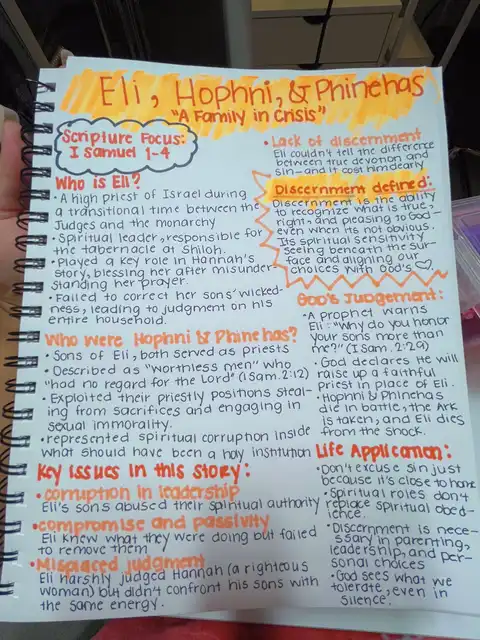 Eli, Hophni, & Phinehas
"A Family in Crisis"
Scripture Focus:
I Samuel 1-4
Who is Eli?
• A high priest of Israel during
a transitional time between the
Judges and the monarchy
• Spiritual leader, responsible for
the tabernacle at Shiloh.
• Played a key role in Hannah's
story, blessing her after misunder-
standing her prayer.
• Failed to correct her sons' wicked-
ness, leading to judgment on his
entire household.
Who were Hophni & Phinehas?
• Sons of Eli, both served as priests
• Described as "worthless men" who
"had no regard for the Lord" (1 Sam. 2:12)
• Exploited their priestly positions steal-
ing from sacrifices and engaging in
sexual immorality.
• represented spiritual corruption inside
what should have been a holy institution
Key issues in this story:
• corruption in leadership
Eli's sons abused their spiritual authority
• compromise and passivity
Eli knew what they were doing but failed
to remove them
• Misplaced judgment
Eli harshly judged Hannah (a righteous
woman) but didn't confront his sons with
the same energy.
• Lack of discernment
Eli couldn't tell the difference
between true devotion and
sin—and it cost him dearly
Discernment defined:
Discernment is the ability
to recognize what is true,
right, and pleasing to God—
even when its not obvious.
Its spiritual sensitivity
seeing beneath the sur-
face and aligning our
choices with God's ♡.
God's Judgement:
• A prophet warns
Eli: "Why do you honor
your sons more than
me?" (1 Sam. 2:29)
• God declares He will
raise up a faithful
priest in place of Eli.
• Hophni & Phinehas
die in battle, the Ark
is taken, and Eli dies
from the shock.
Life Application:
• Don't excuse sin just
because it's close to home
• Spiritual roles don't
replace spiritual obed-
ience.
• Discernment is nece-
ssary in parenting,
leadership, and per-
sonal choices
• God sees what we
tolerate, even in
silence.